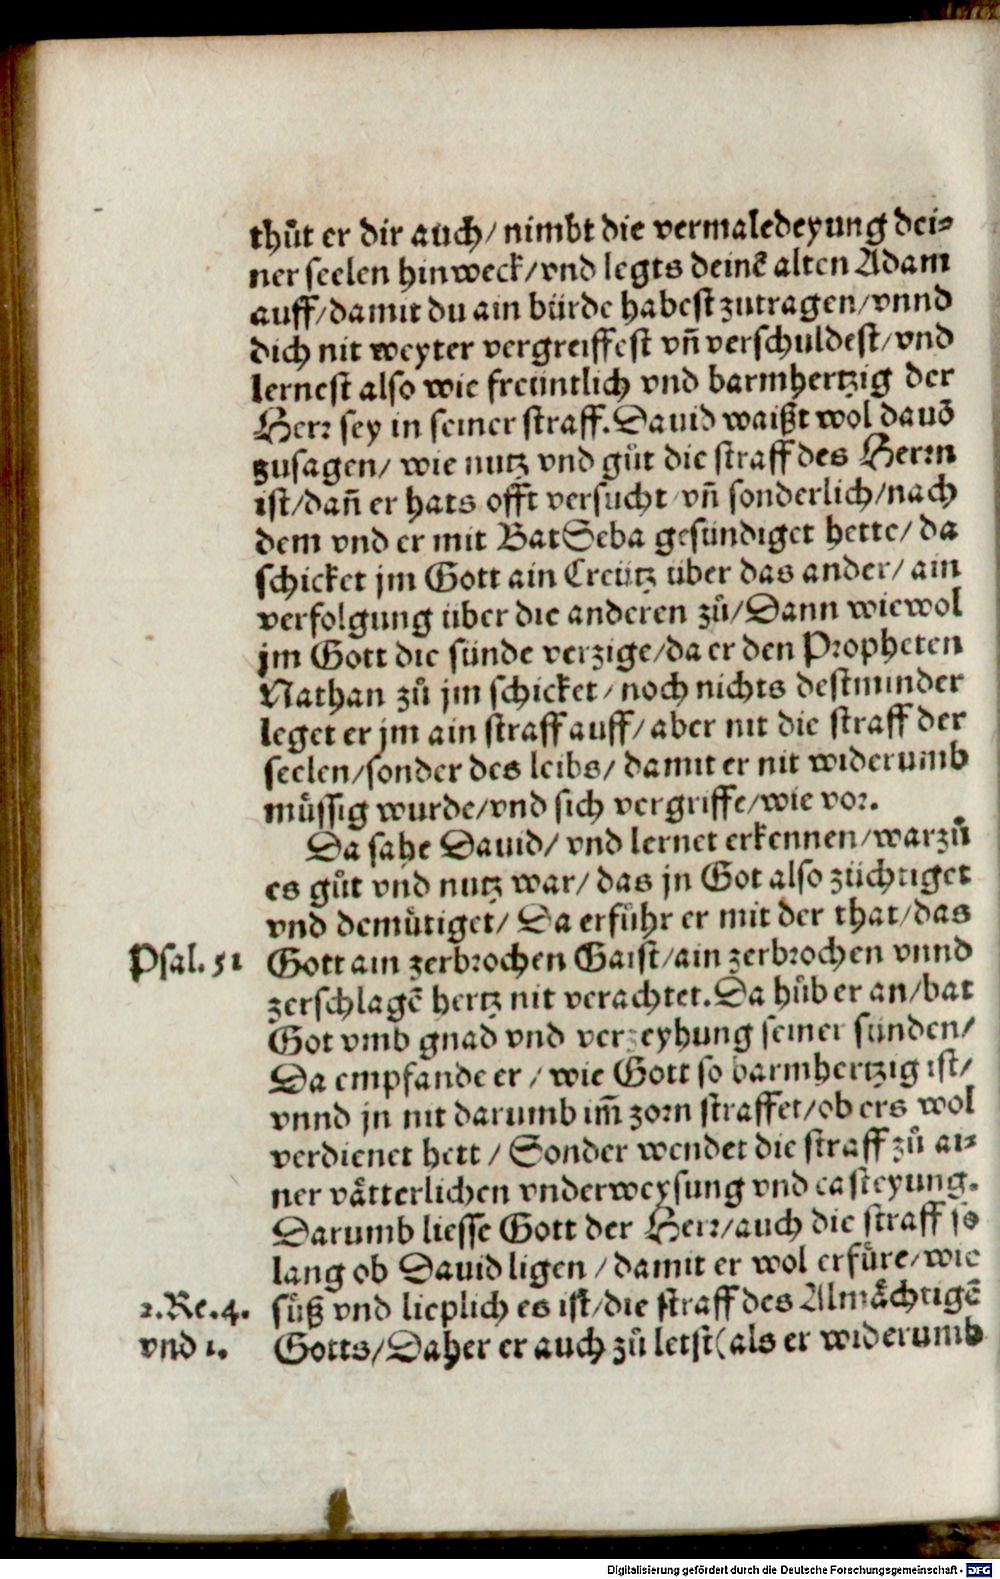 thuͦt er dir auch/ nimbt die vermaledeyung dei⸗
ner seelen hinweck/ vnd legts deinē alten Adam
auff/ damit du ain bürde habest zutragen/ vnnd
dich nit weyter vergreiffest vn̄ verschuldest/ vnd
lernest also wie freüntlich vnd barmhertzig der
Herr sey in seiner straff. Dauid waißt wol dauō
zusagen/ wie nutz vnd guͦt die straff des Herrn
ist/ dan̄ er hats offt versucht/ vn̄ sonderlich/ nach
dem vnd er mit BatSeba gesündiget hette/ da
schicket jm Gott ain Creütz über das ander/ ain
verfolgung über die anderen zuͦ/ Dann wiewol
jm Gott die sünde verzige/ da er den Propheten
Nathan zuͦ jm schicket/ noch nichts destminder
leget er jm ain straff auff/ aber nit die straff der
seelen/ sonder des leibs/ damit er nit widerumb
muͤssig wurde/ vnd sich vergriffe/ wie vor.
Da sahe Dauid/ vnd lernet erkennen/ warzuͦ
es guͦt vnd nutz war/ das jn Got also züchtiget
vnd demuͤtiget/ Da erfuͦhr er mit der that/ das
Psal. 51 Gott ain zerbrochen Gaist/ ain zerbrochen vnnd
zerschlagē hertz nit verachtet. Da huͦb er an/ bat
Got vmb gnad vnd verzeyhung seiner sünden/
Da empfande er/ wie Gott so barmhertzig ist/
vnnd jn nit darumb im̄ zorn straffet/ ob ers wol
verdienet hett/ Sonder wendet die straff zuͦ ai⸗
ner vaͤtterlichen vnderweysung vnd casteyung.
Darumb liesse Gott der Herr/ auch die straff so
lang ob Dauid ligen/ damit er wol erfuͤre/ wie
2. Re. 4. suͤß vnd lieplich es ist/ die straff des Almaͤchtigē
vnd 1. Gotts/ Daher er auch zuͦ letst (als er widerumb
Digitalisierung gefördert durch die Deutsche Forschungsgemeinschaft - DFG